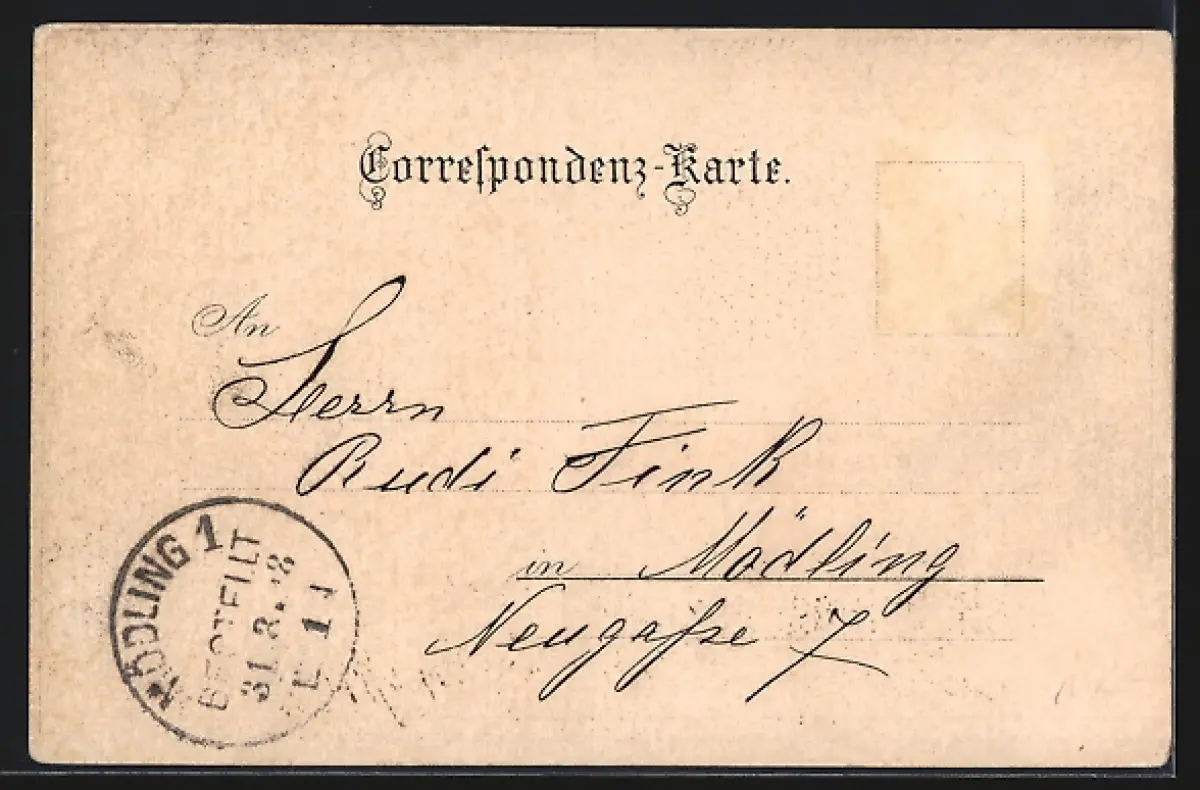 Correspondenz-Karte.
An
Herrn
Rudi Fink
in Mödling
Neugasse 7
MÖDLING 1
BESTELLT
31. 3.